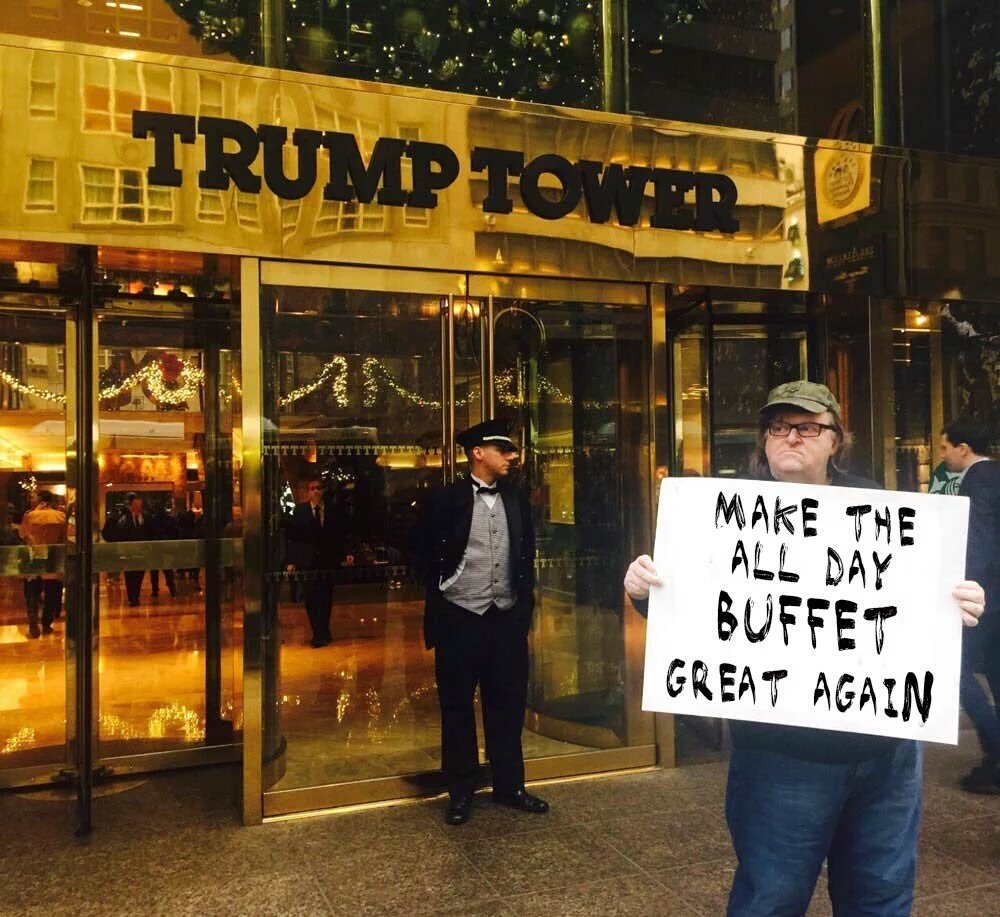 TRUMP TOWER
MAKE THE
ALL DAY
BUFFET
GREAT AGAIN